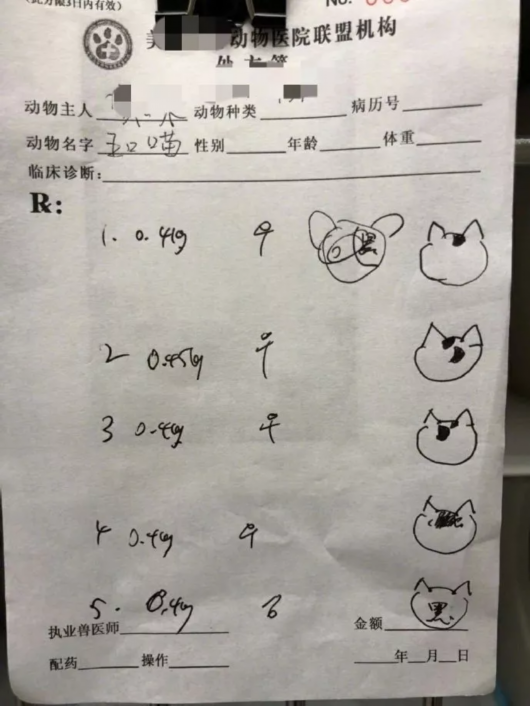 (此方限3日内有效) No.
美 动物医院联盟机构
处方笺
动物主人 动物种类 病历号
动物名字 五口喵 性别 年龄 体重
临床诊断:
R:
1. 0.41g 黑
2 0.45kg
3 0.4kg
4 0.4kg
5. 0.4kg 黑
执业兽医师 金额
配药 操作 年 月 日